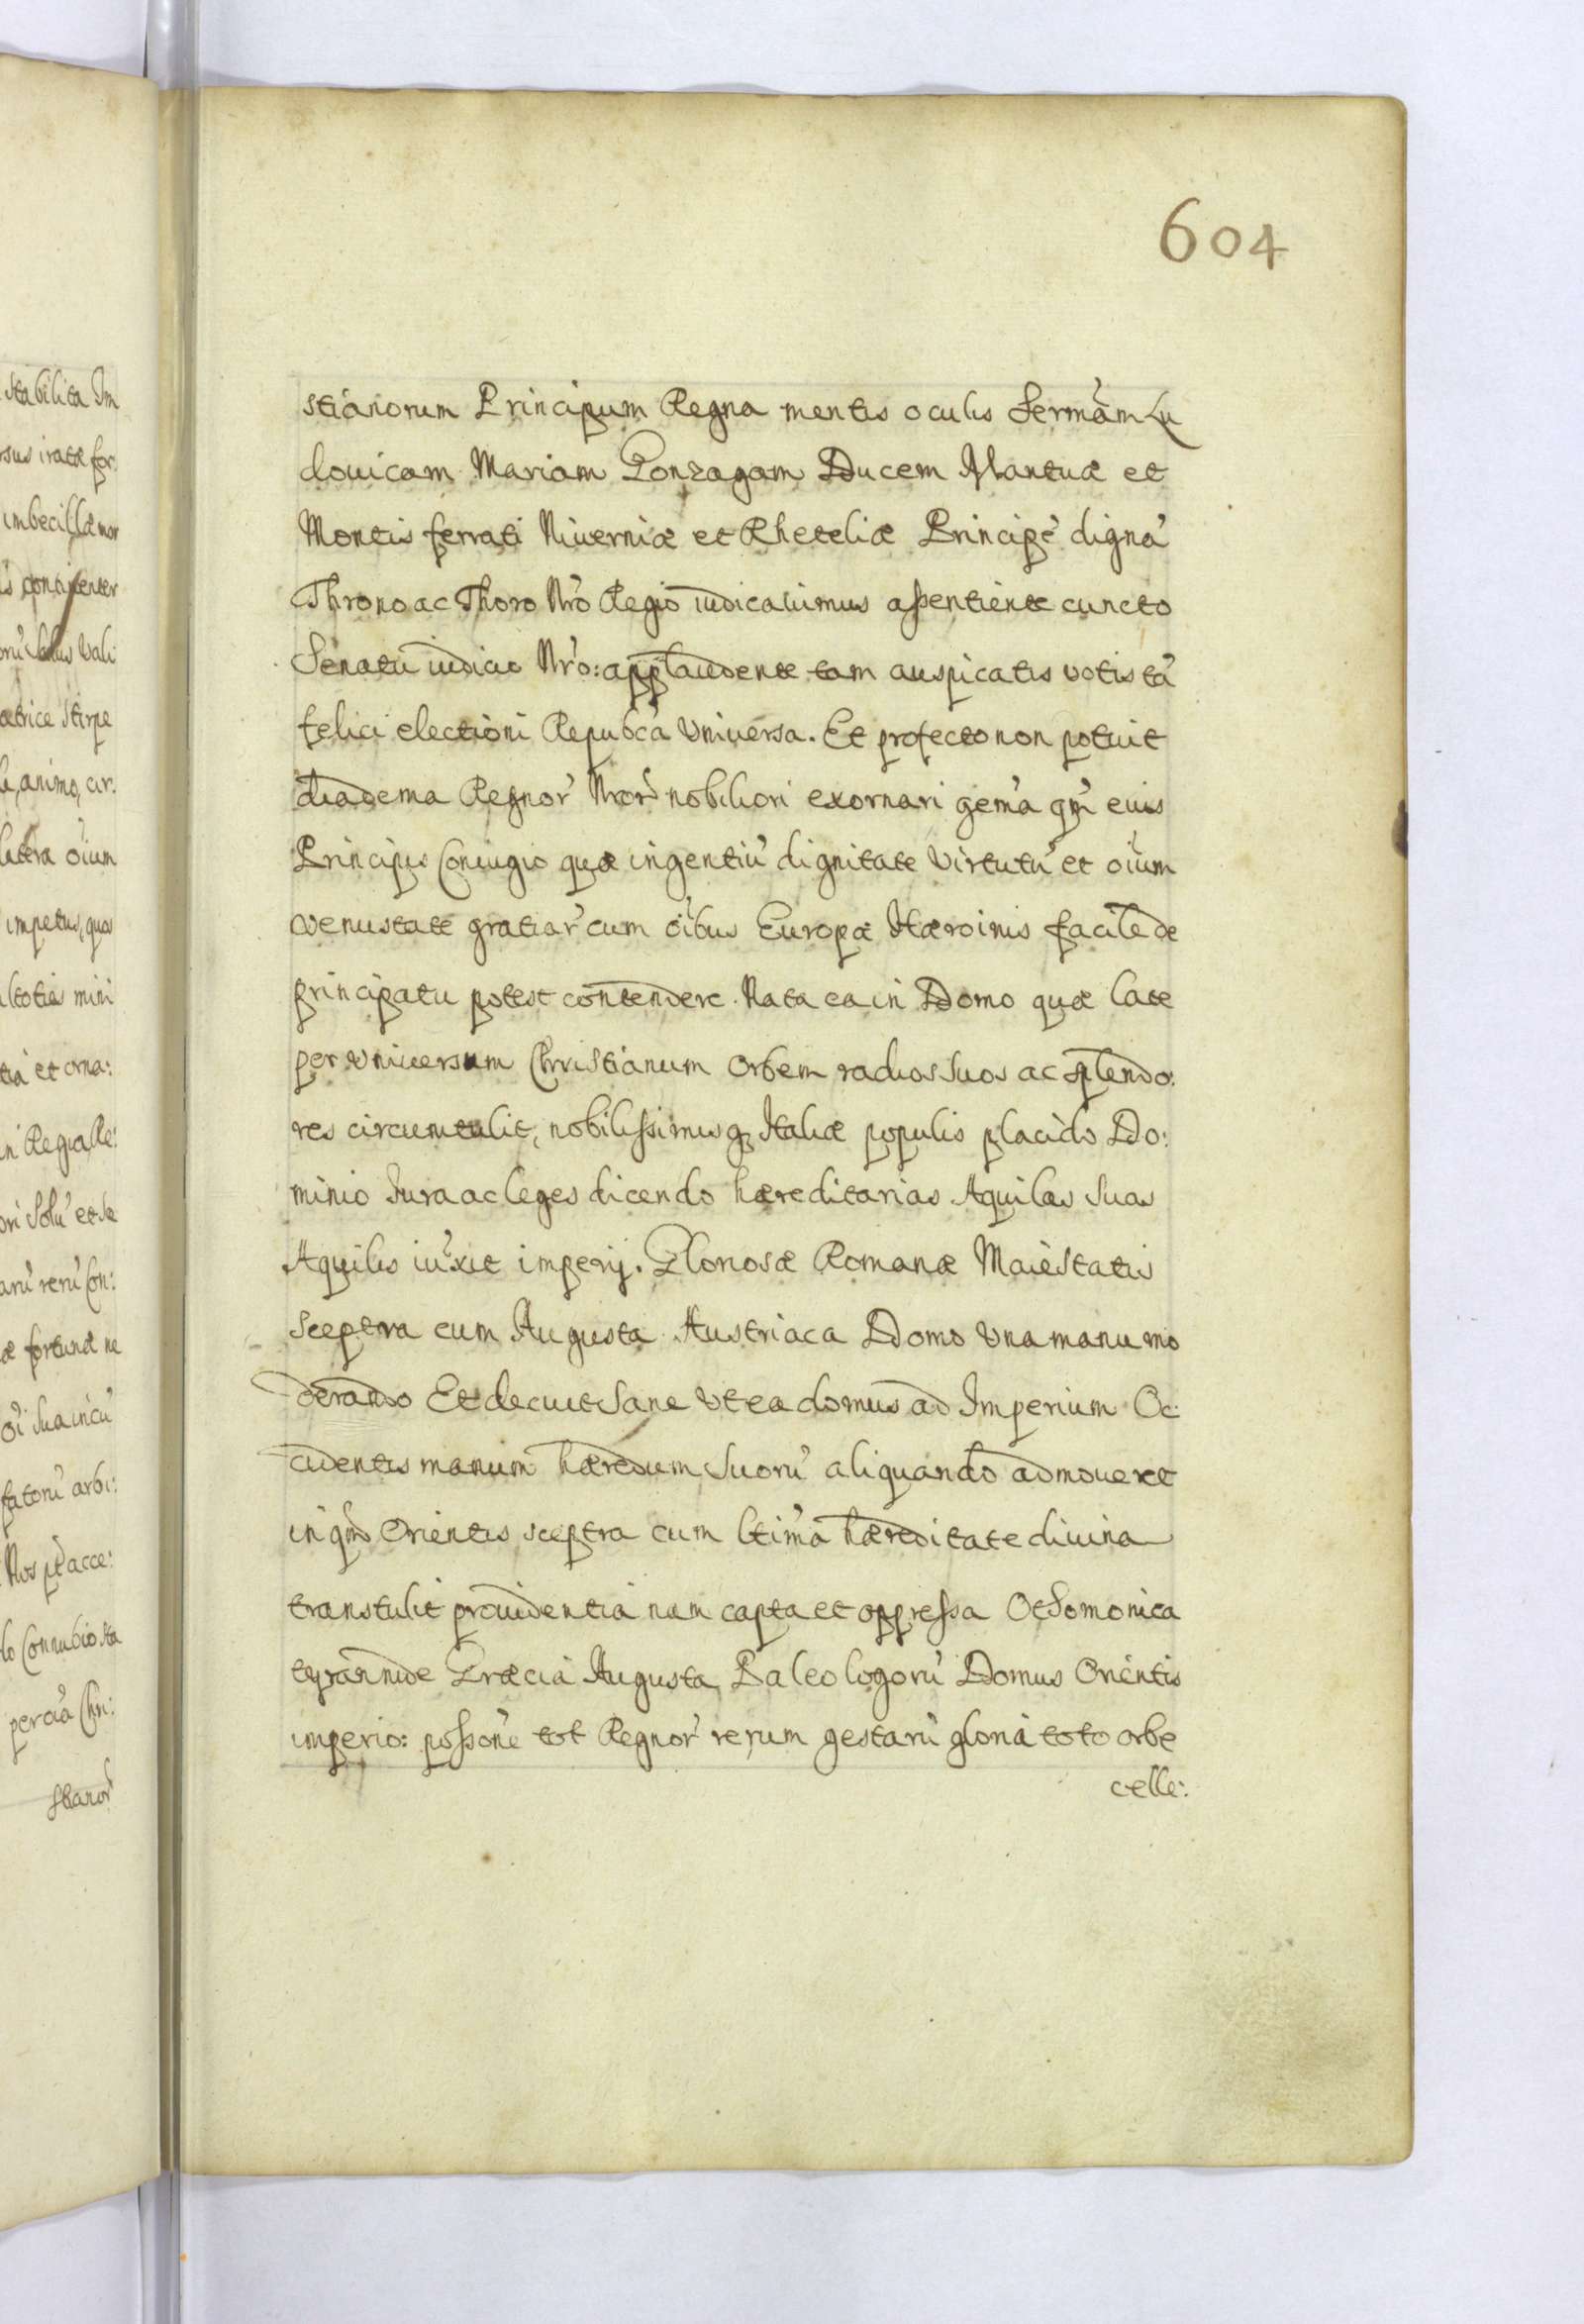 604
stianorum Principum Regna mentis oculis Sermãm Lu
douicam Mariam Gonzagam Ducem Mantuæ et
Montis ferrati Niverniæ et Rheteliæ Principẽ dignã
Throno ac Thoro Nrõ Regio iudicauimus assentiente cuncto
Senatu iudicio Nrõ: applaudente tam auspicatis votis tã
felici electioni Repubcã Vniversa. Et profecto non potuit
diadema Regnor̃ Nror̃ nobiliori exornari gem̃a qm̃ euis
Principis Coniugio quæ ingentiũ dignitate Virtutũ et oĩum
venustate gratiar̃ cum oĩbus Europæ Hæroinis facile de
principatu potest contendere. Nata ea in Domo quæ late
per Vniuersum Christianum Orbem radios suos ac splendo:
res circumtulit, nobilissimisq₃ Italiæ populis placido Do:
minio Jura ac leges dicendo hæreditarias Aquilas suas
Aquilis iũxit imperij. Gloriosæ Romanæ Maiestatis
Sceptra cum Augusta Austriaca Domo Vna manu mo
derando Et decuit sane Vt ea domus ad Imperium Oc:
cidentis manum hæredum suorũ aliquando admoueret
in qm̃ Orientis sceptra cum ltim̃a hæreditate diuina
transtulit prouidentia nam capta et oppressa Otsomonica
tyrannide Græcia Augusta Paleologorũ Domus Orientis
imperio: possonẽ tot Regnor̃ rerum gestarũ gloria toto orbe
celle:
stabilita Im
rsus iratæ for:
imbecillæ mor
ætrice stirpe
animo, cir:
latera oĩum
impetus, quos
ltotias mini
tia et orna:
in Regia Re:
ori Solũ et Se
arũ rerũ Con:
æ fortunæ ne
oĩ sua incũ
fatorũ arbi:
Nos pt acce:
lo Connubio sta
Chri:
stianor̃